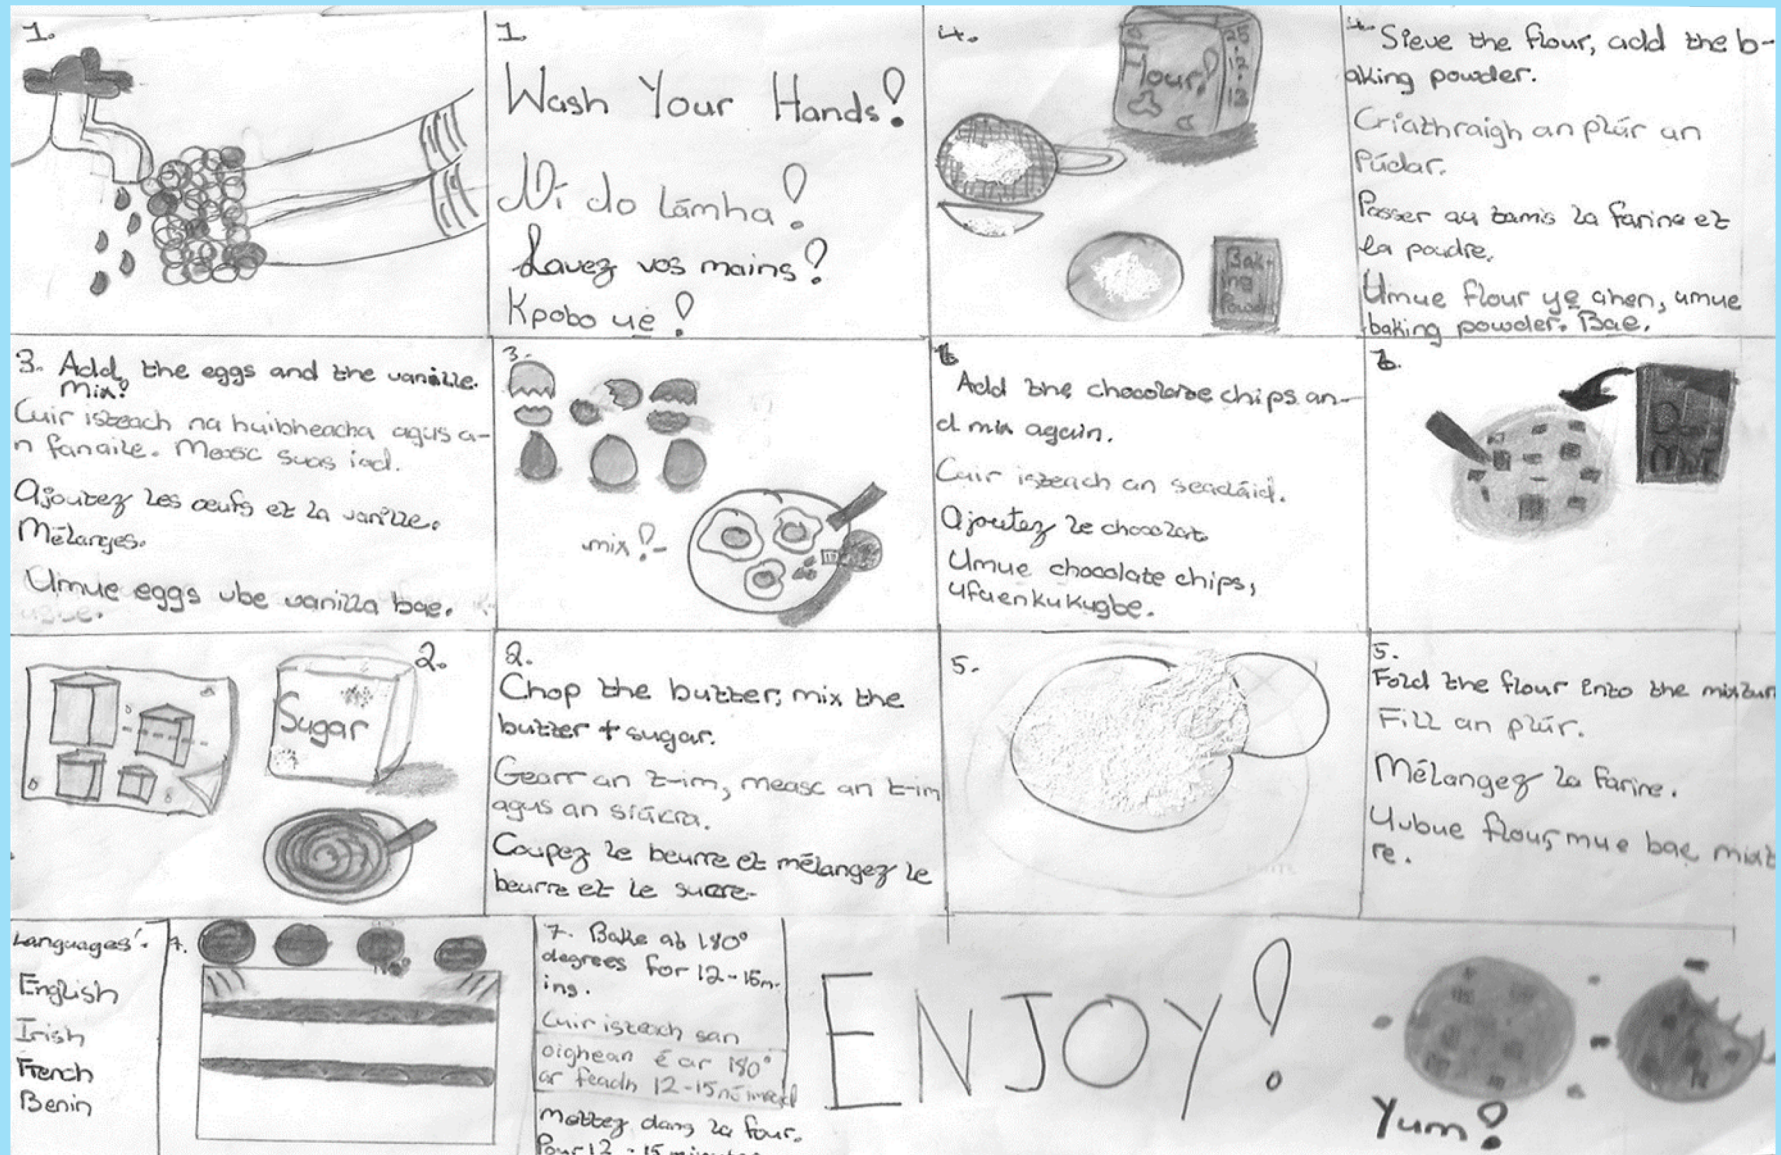 1.
1.
Wash Your Hands!
Ní do lámha!
Lavez vos mains!
Kpobo ue!
4.
Flour!
25
12
13
Bak-
ing
Powder
4. Sieve the flour, add the b-
aking powder.
Criathraigh an plúr an
Púdar.
Passer au tamis la farine et
la poudre.
Umue flour ye ahen, umue
baking powder. Bae.
3. Add the eggs and the vanille.
Mix!
Cuir isteach na huibheacha agus a-
n fanaile. Measc suas iad.
Ajoutez les œufs et la vanille.
Mélanges.
Umue eggs ube vanilla bae.
3.
mix!-
6.
Add the chocolate chips an-
d mix again.
Cuir isteach an seacláid.
Ajoutez le chocolat
Umue chocolate chips,
ufuenkukugbe.
6.
2.
Sugar
2.
Chop the butter, mix the
butter + sugar.
Gearr an t-im, measc an t-im
agus an siúcra.
Coupez le beurre et mélangez le
beurre et le sucre-
5.
5.
Fold the flour into the mixtur
Fill an plúr.
Mélangez la farine.
Uubue flour, mue bae mixt
re.
Languages:-
English
Irish
French
Benin
7.
7. Bake at 180°
degrees for 12-15m-
ins.
Cuir isteach san
oighean é ar 180°
ar feadh 12-15 nóiméad
Mettez dans la four.
Pour 12 - 15 minutes
ENJOY!
Yum!